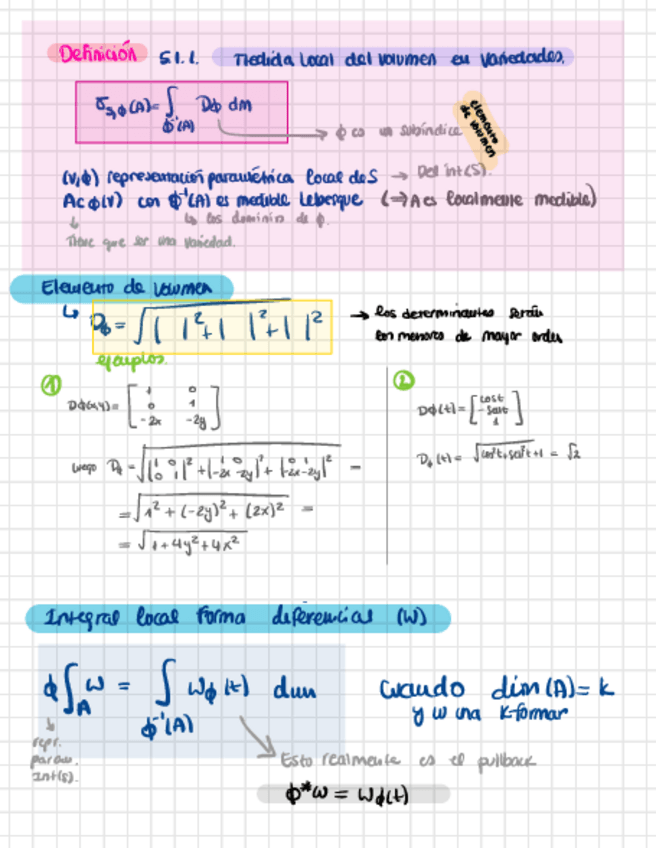 Definición 5.1.1. Medida local del volumen en variedades.
σ_{S,ϕ}(A) = ∫_{ϕ⁻¹(A)} Dϕ dm
ϕ es un subíndice
elemento de volumen
(V,ϕ) representación paramétrica local de S → Del int(S).
A⊂ϕ(V) con ϕ⁻¹(A) es medible Lebesgue (⇒ A es localmente medible)
↳ los dominio de ϕ.
Tiene que ser una variedad.
Elemento de volumen
↳ D_ϕ = √(| |² + | |² + | |²) → los determinantes serán
los menores de mayor orden
ejemplos.
① Dϕ(x,y) = [1 0; 0 1; -2x -2y]
luego D_ϕ = √(|1 0; 0 1|² + |1 0; -2x -2y|² + |0 1; -2x -2y|²) =
= √(1² + (-2y)² + (2x)²) =
= √(1+4y²+4x²)
② Dϕ(t) = [cost; -sent; 1]
D_ϕ(t) = √(cos²t+sen²t+1) = √2
Integral local forma diferencial (W)
ϕ∫_A ω = ∫_{ϕ⁻¹(A)} Wϕ(t) dm cuando dim(A)=k
y w una k-formar
repr.
param.
Int(S).
Esto realmente es el pullback
ϕ*ω = Wϕ(t)